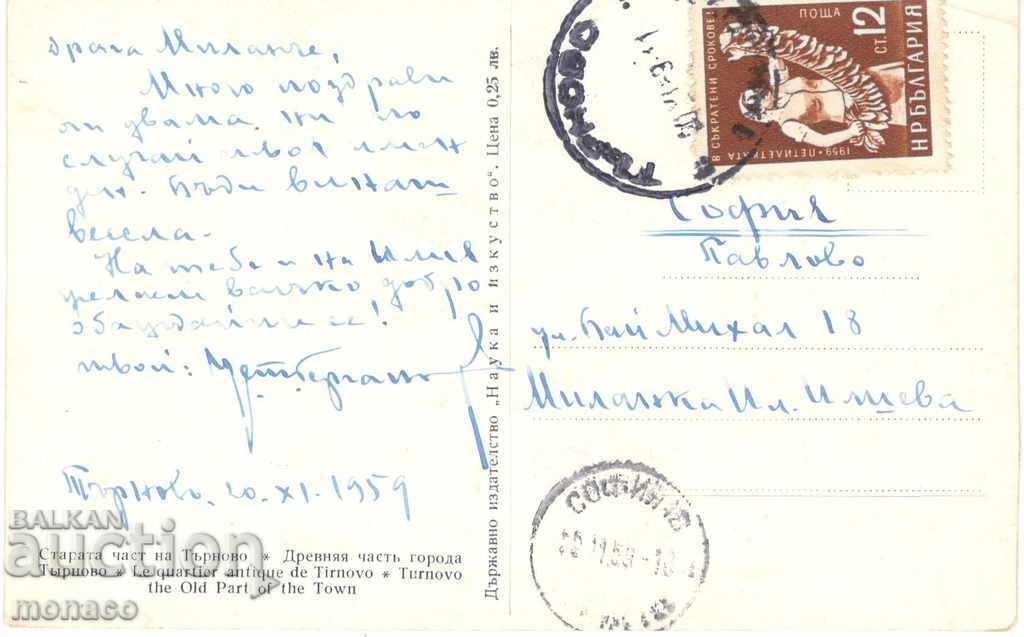 Драга Миланче,
Много поздрави
от двама ни по
случай твоя имен
ден. Бъди винаги
весела.
На тебе и на Илиев
желаем всичко добро
обаждайте се!
твои:
Търново. 20.XI.1959
Старата част на Търново * Древняя часть города
Тырново * Le quartier antique de Tirnovo * Turnovo
the Old Part of the Town
Държавно издателство „Наука и изкуство". Цена 0,25 лв.
ТЪРНОВО
В СЪКРАТЕНИ СРОКОВЕ!
ПОЩА
12 СТ.
НР БЪЛГАРИЯ
1959 • ПЕТИЛЕТКАТА
София
Павлово
ул. Бай Михал 18
Миланка Ил. Илиева
СОФИЯ
BALKAN
auction
monaco